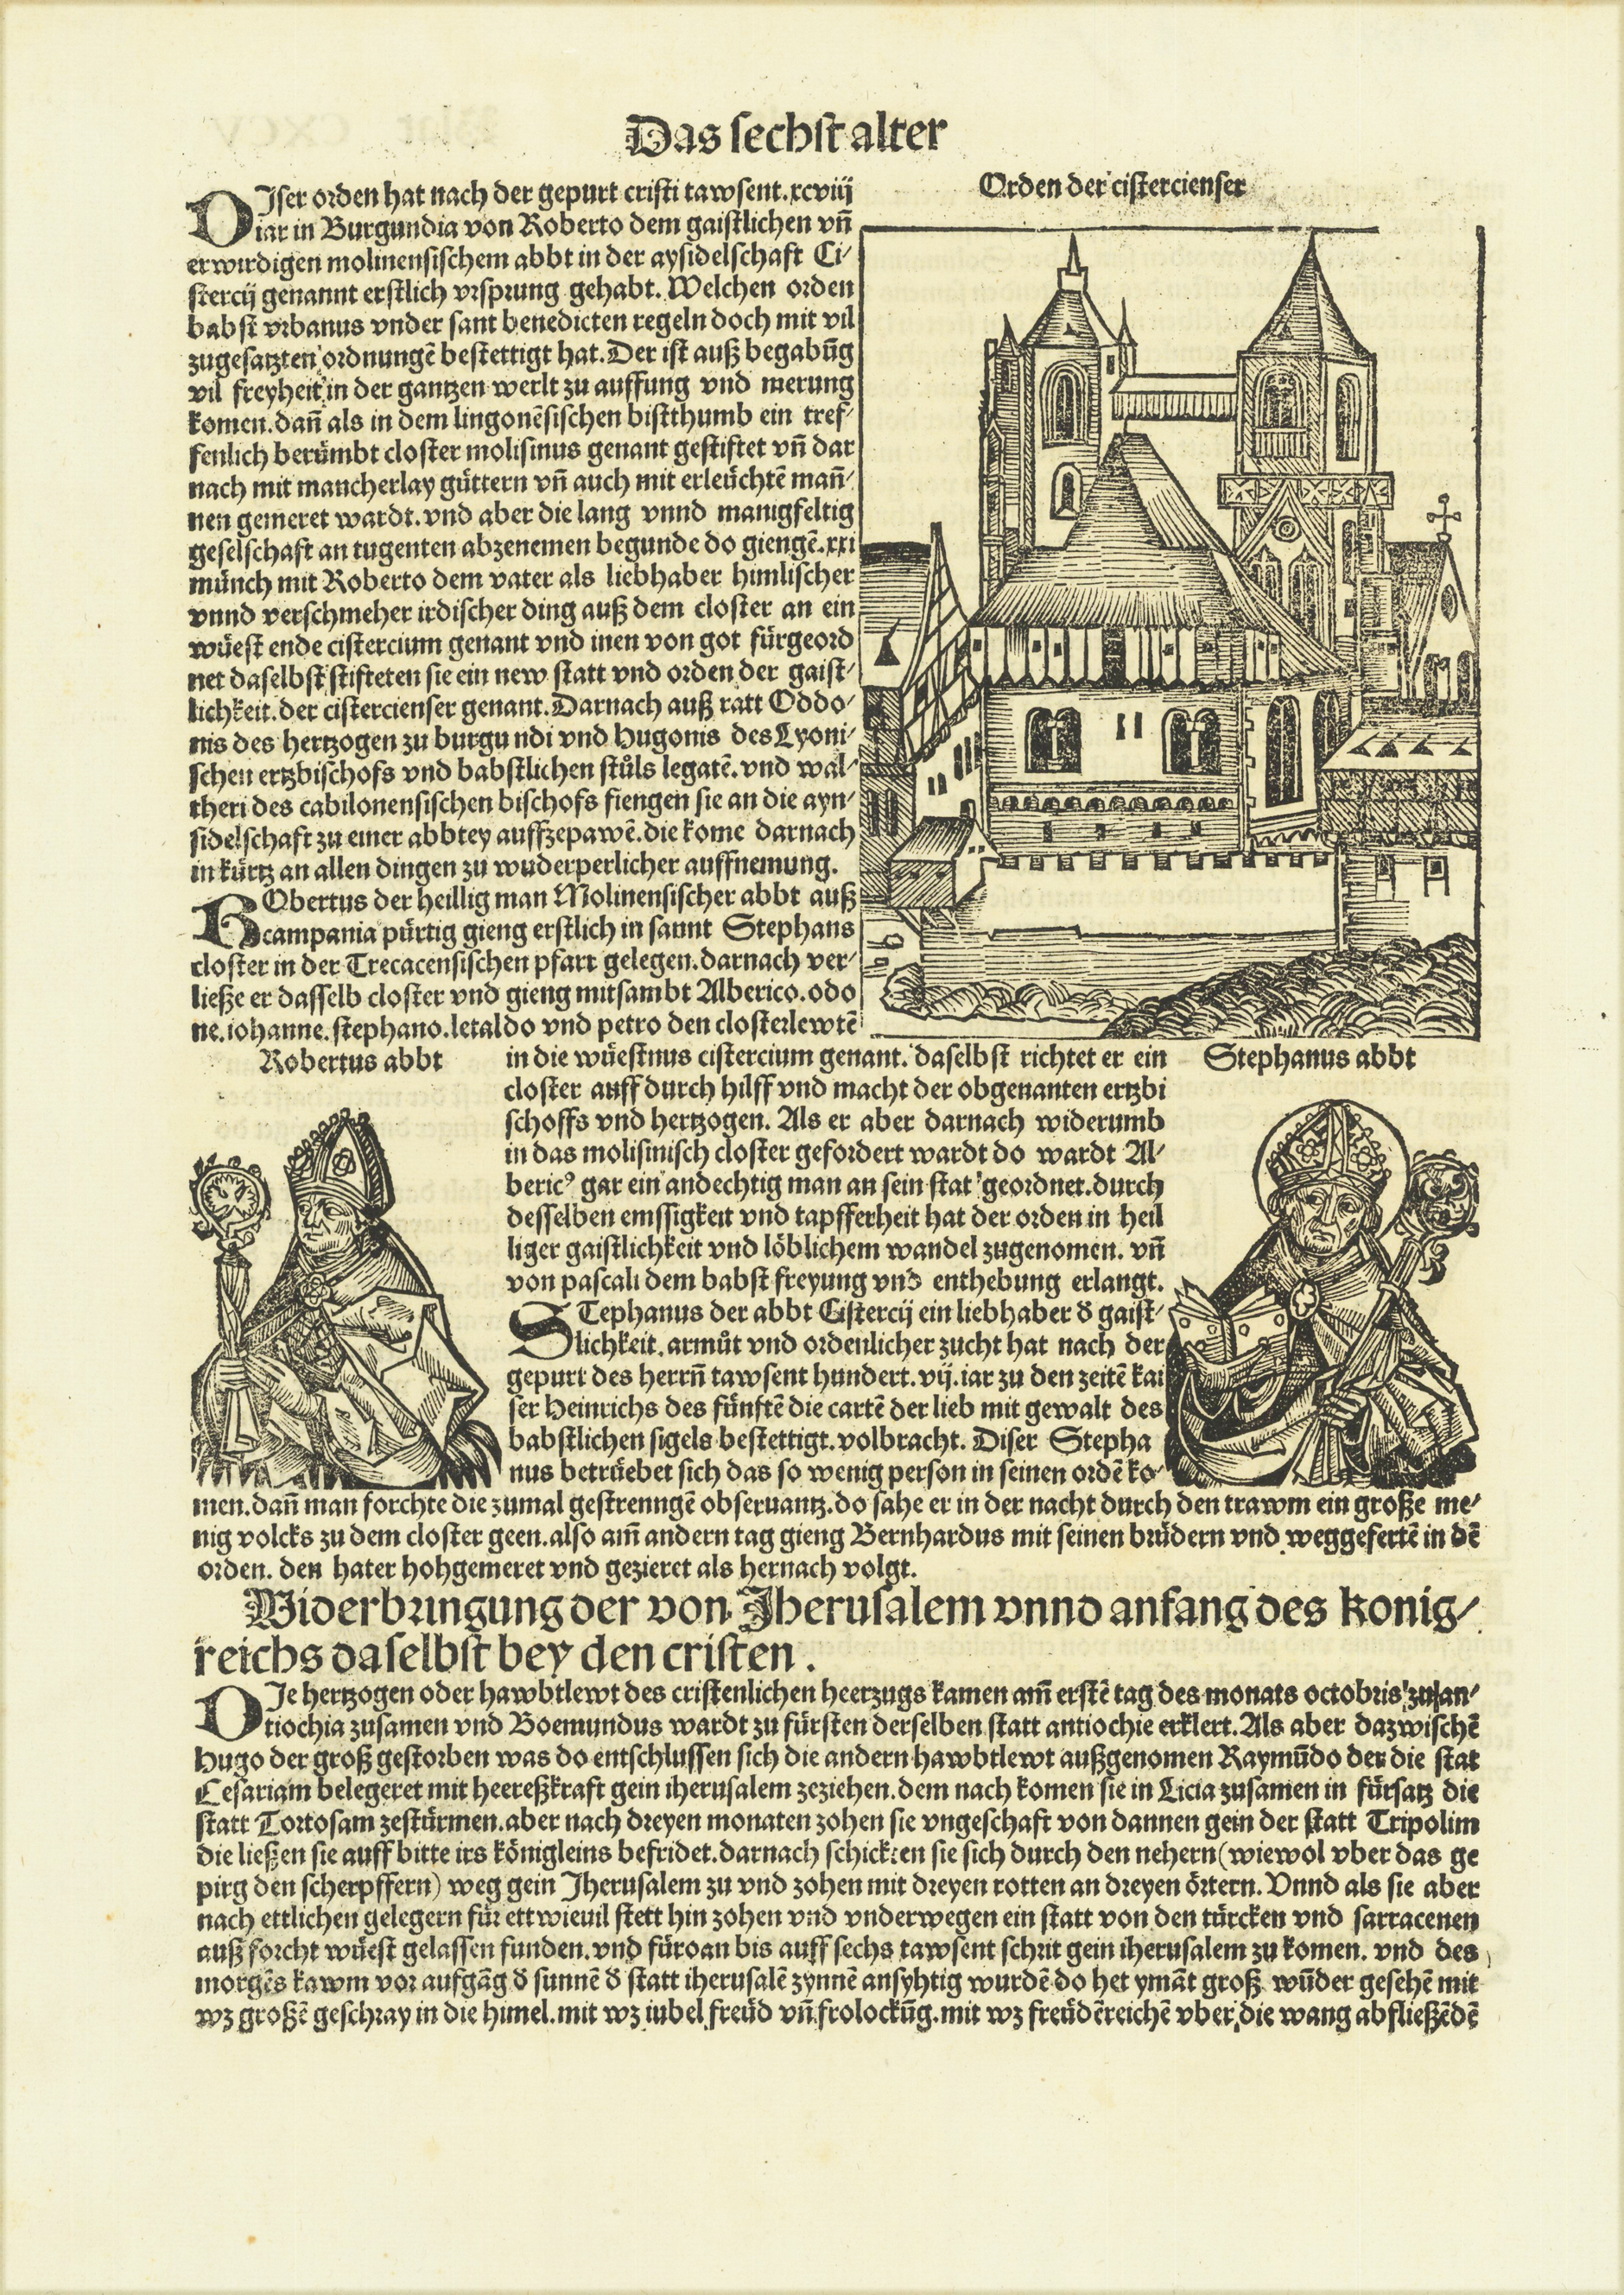 Das sechst alter
Orden der cistercienser
DIser orden hat nach der gepurt cristi tawsent.xcviij
iar in Burgundia von Roberto dem gaistlichen vñ
erwirdigen molinensischem abbt in der aysidelschaft Ci/
stercij genannt erstlich vrsprung gehabt. Welchen orden
babst vrbanus vnder sant benedicten regeln doch mit vil
zugesatzten ordnungē bestettigt hat. Der ist auß begabūg
vil freyheit in der gantzen werlt zu auffung vnd merung
komen. dañ als in dem lingonēsischen bistthumb ein tref/
fenlich berümbt closter molisinus genant gestiftet vñ dar
nach mit mancherlay güttern vñ auch mit erleüchtē mañ/
nen gemeret wardt. vnd aber die lang vnnd manigfeltig
geselschaft an tugenten abzenemen begunde do giengē.xxi
münch mit Roberto dem vater als liebhaber himlischer
vnnd verschmeher irdischer ding auß dem closter an ein
wüest ende cistercium genant vnd inen von got fürgeord
net daselbst stifteten sie ein new statt vnd orden der gaist/
lichkeit. der cistercienser genant. Darnach auß ratt Oddo/
nis des hertzogen zu burgundi vnd hugonis des Lyoni/
schen ertzbischofs vnd babstlichen stůls legatē. vnd wal/
theri des cabilonensischen bischofs fiengen sie an die ayn/
sidelschaft zu einer abbtey auffzepawē. die kome darnach
in kürtz an allen dingen zu wuderperlicher auffnemung.
RObertus der heillig man Molinensischer abbt auß
campania pürtig gieng erstlich in sannt Stephans
closter in der Trecacensischen pfarr gelegen. darnach ver/
ließe er dasselb closter vnd gieng mitsambt Alberico. odo
ne. iohanne. stephano. letaldo vnd petro den closterlewtē
Robertus abbt
in die wüestnus cistercium genant. daselbst richtet er ein
closter auff durch hilff vnd macht der obgenanten ertzbi
schoffs vnd hertzogen. Als er aber darnach widerumb
in das molisinisch closter gefordert wardt do wardt Al/
bericꝰ gar ein andechtig man an sein stat geordnet. durch
desselben emssigkeit vnd tapfferheit hat der orden in heil
liger gaistlichkeit vnd löblichem wandel zugenomen. vñ
von pascali dem babst freyung vnd enthebung erlangt.
Stephanus abbt
STephanus der abbt Cistercij ein liebhaber đ gaist/
lichkeit. armůt vnd ordenlicher zucht hat nach der
gepurt des herrñ tawsent hundert. vij. iar zu den zeitē kai
ser Heinrichs des fünftē die cartē der lieb mit gewalt des
babstlichen sigels bestettigt. volbracht. Diser Stepha
nus betrüebet sich das so wenig person in seinen ordē ko/
men. dañ man forchte die zumal gestrenngē obseruantz. do sahe er in der nacht durch den trawm ein große me/
nig volcks zu dem closter geen. also am̄ andern tag gieng Bernhardus mit seinen brüdern vnd weggefertē in dē
orden. den hater hohgemeret vnd gezieret als hernach volgt.
Widerbringung der von Jherusalem vnnd anfang des konig/
reichs daselbst bey den cristen.
DIe hertzogen oder hawbtlewt des cristenlichen heerzugs kamen am̄ erstē tag des monats octobris zu an/
tiochia zusamen vnd Boemundus wardt zu fürsten derselben statt antiochie erklert. Als aber dazwischē
Hugo der groß gestorben was do entschlussen sich die andern hawbtlewt außgenomen Raymūdo der die stat
Cesariam belegeret mit heereßkraft gein iherusalem zeziehen. dem nach komen sie in Licia zusamen in fürsatz die
statt Tortosam zestürmen. aber nach dreyen monaten zohen sie vngeschaft von dannen gein der statt Tripolim
die ließen sie auff bitte irs königleins befridet. darnach schickten sie sich durch den nehern (wiewol vber das ge
pirg den scherpffern) weg gein Jherusalem zu vnd zohen mit dreyen rotten an dreyen örtern. Vnnd als sie aber
nach ettlichen gelegern für ettwieuil stett hin zohen vnd vnderwegen ein statt von den türcken vnd sarracenen
auß forcht wüest gelassen funden. vnd füroan bis auff sechs tawsent schrit gein iherusalem zu komen. vnd des
morgēs kawm vor aufgāg đ sunnē đ statt iherusalē zynnē ansyhtig wurdē do het ymāt groß wūder gesehē mit
wz großē geschray in die himel. mit wz iubel freüd vñ frolockūg. mit wz freüdēreichē vber die wang abfließēdē